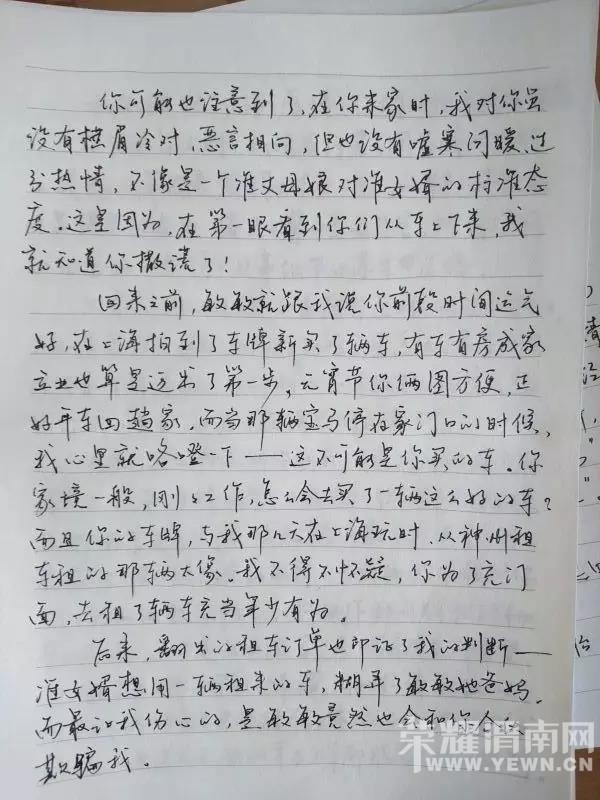 你可能也注意到了,在你来家时,我对你虽
没有横眉冷对,恶言相向,但也没有嘘寒问暖,过
分热情,不像是一个准丈母娘对准女婿的标准态
度。这是因为,在第一眼看到你们从车上下来,我
就知道你撒谎了!
回来之前,敏敏就跟我说你前段时间运气
好,在上海拍到了车牌新买了辆车,有车有房成家
立业也算是迈出了第一步。元宵节你俩图方便,正
好开车回趟家,而当那辆宝马停在家门口的时候,
我心里就咯噔一下——这不可能是你买的车。你
家境一般,刚工作,怎么会去买了一辆这么好的车?
而且你的车牌,与我那几天在上海玩时,从神州租
车租的那辆太像。我不得不怀疑,你为了充门
面,去租了辆车充当年少有为。
后来,翻出的租车订单也印证了我的判断——
准女婿想用一辆租来的车,糊弄了敏敏她爸妈。
而最让我伤心的,是敏敏竟然也会和你合伙
欺骗我。
荣耀渭南网
WWW.YEWN.CN